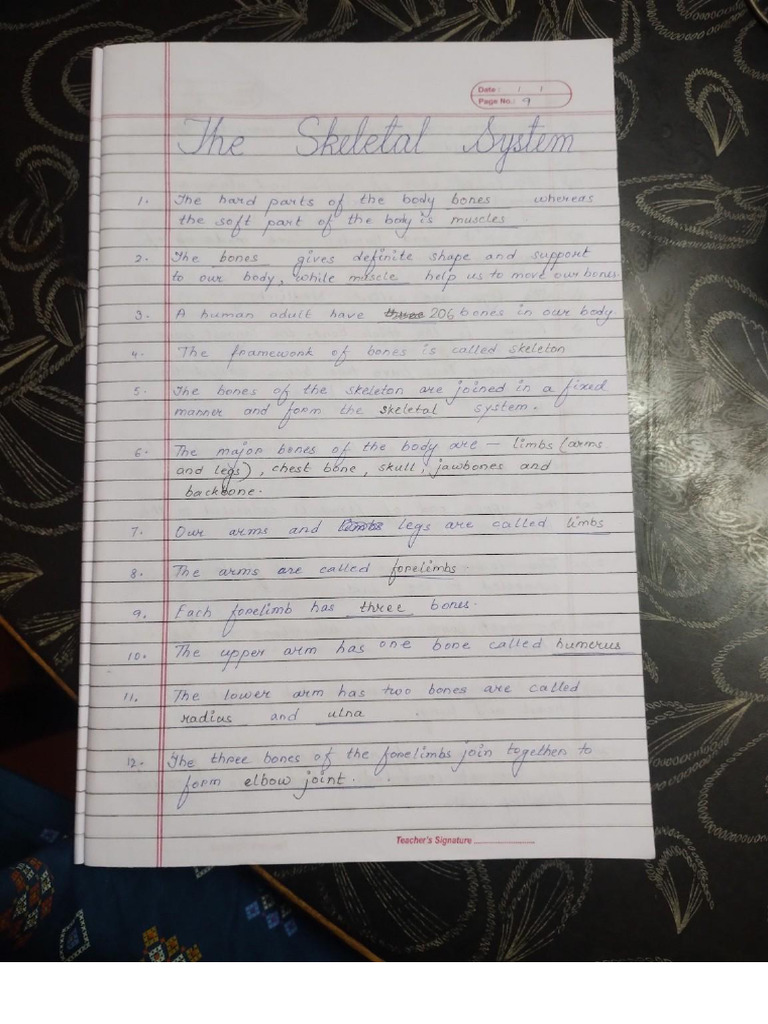 Date : / /
Page No.: 9
The Skeletal System
1. The hard parts of the body bones whereas
the soft part of the body is muscles
2. The bones gives definite shape and support
to our body, while muscle help us to move our bones.
3. A human adult have three 206 bones in our body.
4. The framework of bones is called skeleton
5. The bones of the skeleton are joined in a fixed
manner and form the skeletal system.
6. The major bones of the body are — limbs (arms
and legs), chest bone, skull, jawbones and
backbone.
7. Our arms and limbs legs are called limbs
8. The arms are called forelimbs.
9. Each forelimb has three bones.
10. The upper arm has one bone called humerus
11. The lower arm has two bones are called
radius and ulna .
12. The three bones of the forelimbs join together to
form elbow joint. .
Teacher's Signature